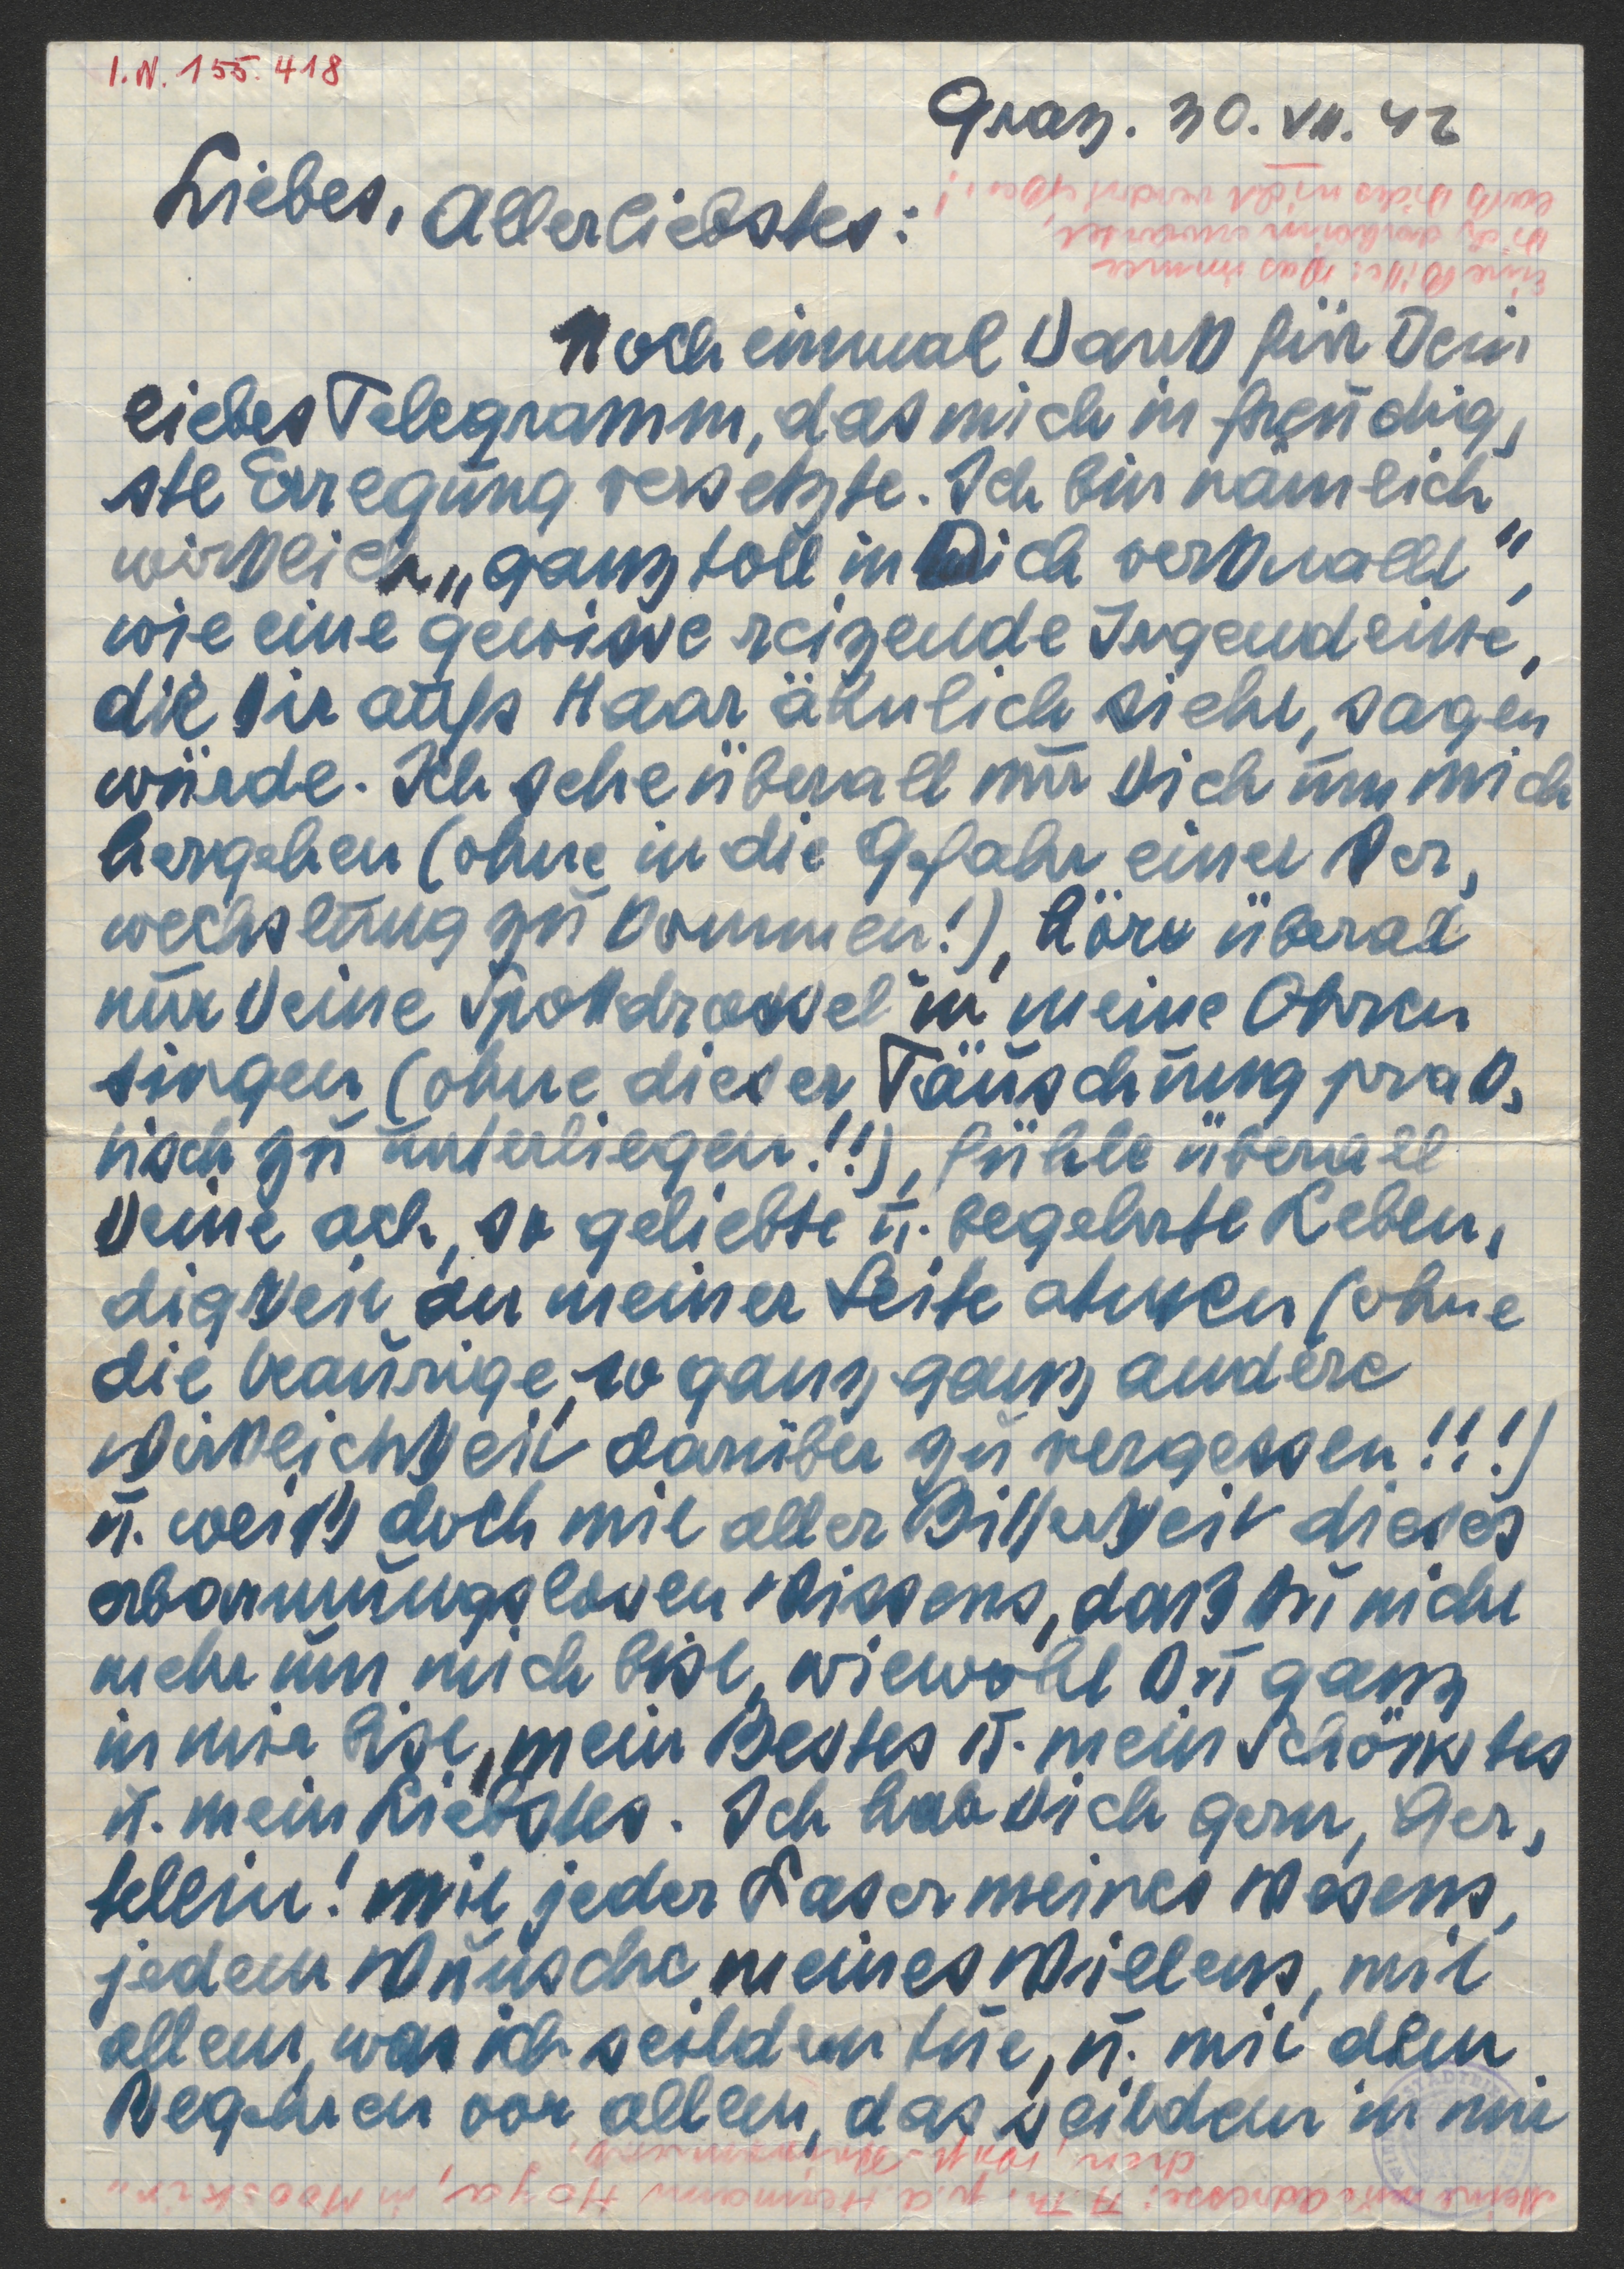 I.N. 155.418
Graz. 30. VII. 42
Liebes, Allerliebstes:
Eine Bitte: Was immer
Dich daheim erwartet,
laß Dides nicht verdrießen!
Noch einmal Dank für Dein
liebes Telegramm, das mich in freudig,
ste Erregung versetzte. Ich bin nämlich
wirklich „ganz toll in Dich verknallt",
wie eine gewisse reizende Irgendeine,
die Dir aufs Haar ähnlich sieht, sagen
würde. Ich sehe überall nur Dich um mich
hergehen (ohne in die Gefahr einer Ver,
wechslung zu kommen!), höre überall
nur Deine Spottdrossel in meine Ohren
singen (ohne dieser Täuschung prak,
tisch zu unterliegen!!), fühle überall
Deine ach, so geliebte u. begehrte Leben,
digkeit an meiner Seite atmen (ohne
die traurige, so ganz ganz andere
Wirklichkeit darüber zu vergessen!!!)
u. weiß doch mit aller Bitterkeit dieses
erbarmungslosen Wissens, daß Du nicht
mehr um mich bist, wiewohl Du ganz
in mir bist, mein Bestes u. mein Schönstes
u. mein Liebstes. Ich hab Dich gern, Ger,
tellein! Mit jeder Faser meines Wesens,
jedem Wunsche meines Willens, mit
allem, was ich seitdem tue, u. mit dem
Begehren vor allem, das seitdem in mir
Meine Adresse: A. Th. p. a. Hermann Hoya, in Mooskir,
chen,